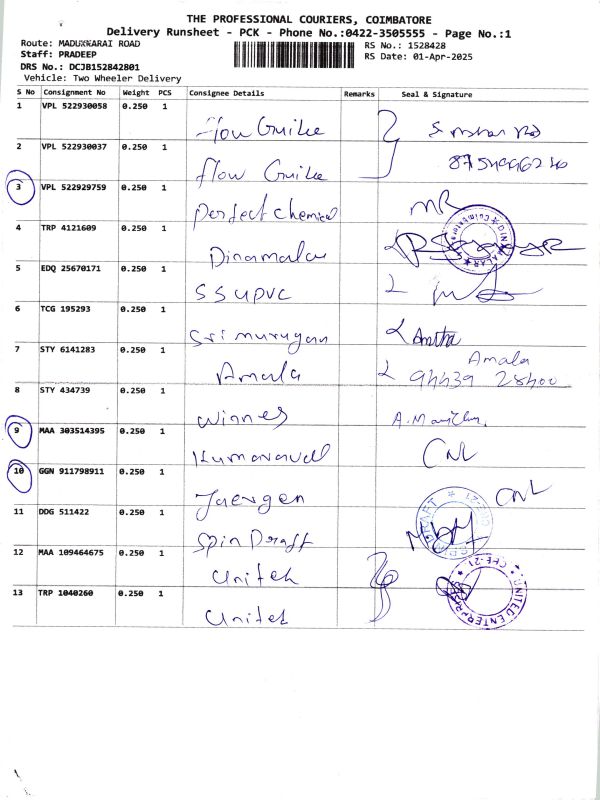 THE PROFESSIONAL COURIERS, COIMBATORE
Delivery Runsheet - PCK - Phone No.:0422-3505555 - Page No.:1
Route: MADUKKARAI ROAD RS No.: 1528428
Staff: PRADEEP RS Date: 01-Apr-2025
DRS No.: DCJB152842801
Vehicle: Two Wheeler Delivery
S No Consignment No Weight PCS Consignee Details Remarks Seal & Signature
1 VPL 522930058 0.250 1 Flow Guike
2 VPL 522930037 0.250 1 Flow Guike
3 VPL 522929759 0.250 1 Perfect Chemical NR
4 TRP 4121609 0.250 1 Dinamalar
5 EDQ 25670171 0.250 1 SSUPVC
6 TCG 195293 0.250 1 Sri murugan
7 STY 6141283 0.250 1 Amala Amala
94439 28400
8 STY 434739 0.250 1 Winnes
9 MAA 303514395 0.250 1 Kumaravel CNL
10 GGN 911798911 0.250 1 Juergen CNL
11 DDG 511422 0.250 1 Spin Draft
12 MAA 109464675 0.250 1 Unitek
13 TRP 1040260 0.250 1 Unitek